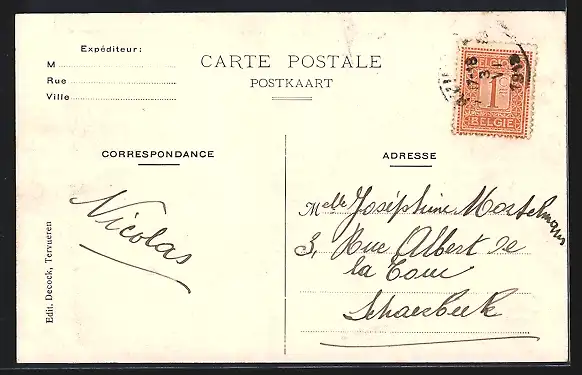 Expéditeur:
M
Rue
Ville
CARTE POSTALE
POSTKAART
1
BELGIË
CORRESPONDANCE
ADRESSE
Nicolas
Melle Joséphine Mostelmans
3, Rue Albert de
la Tour
Schaerbeek
Edit. Decock, Tervueren